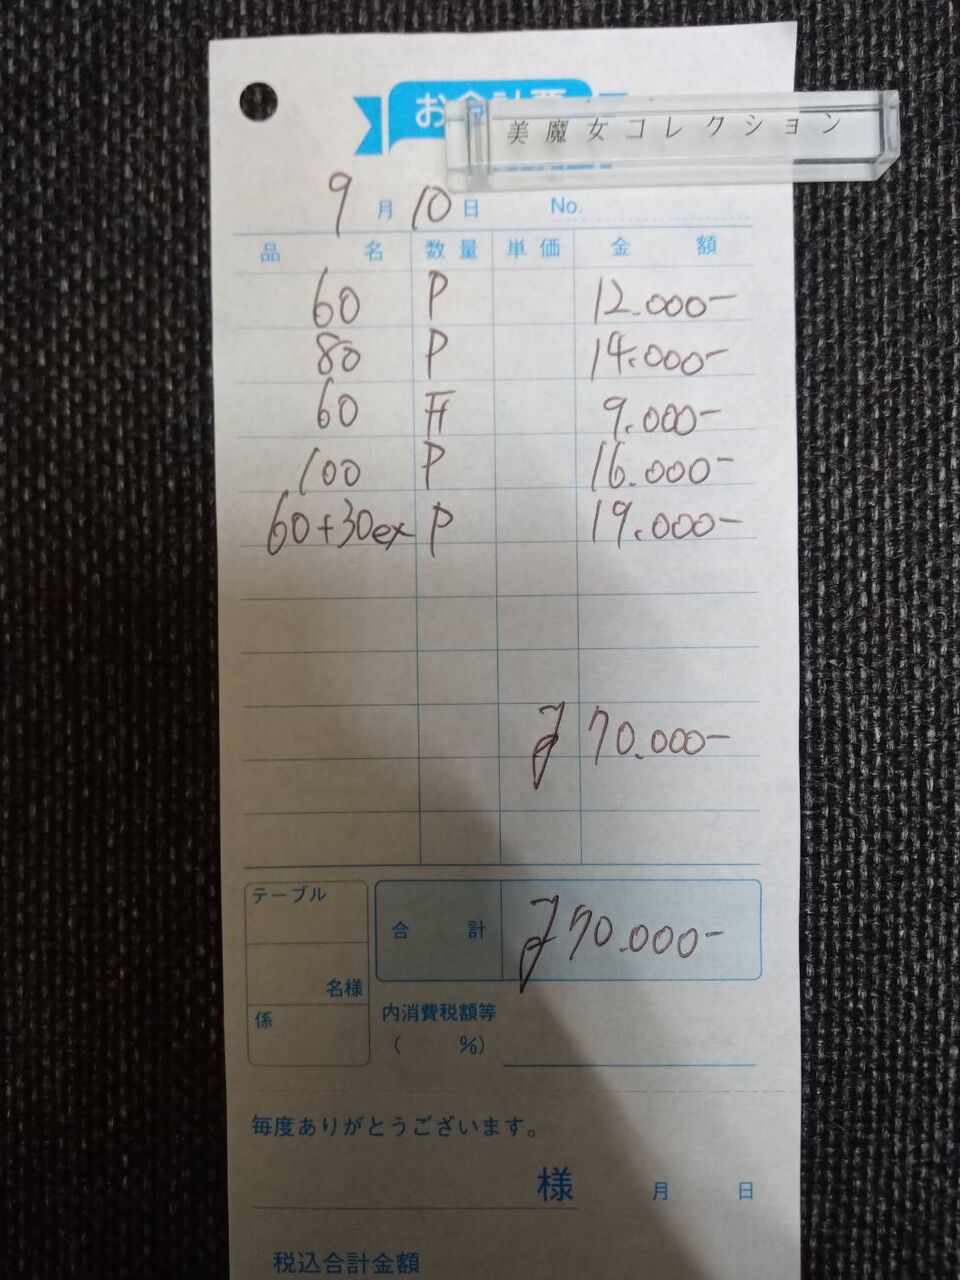 美魔女コレクション
9月10日 No.
品名 数量 単価 金額
60 P 12.000-
80 P 14.000-
60 9.000-
100 P 16.000-
60+30ex P 19.000-
70.000-
テーブル
合計 70.000-
名様
係
内消費税額等
( %)
毎度ありがとうございます。
様 月 日
税込合計金額